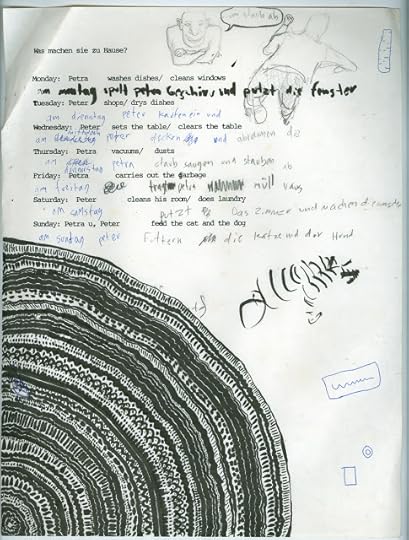 ich staub ab
Was machen sie zu Hause?
Monday: Petra washes dishes/ cleans windows
am montag spült petra Geschirr und putzt die fenster
Tuesday: Peter shops/ drys dishes
am dienstag peter und
Wednesday: Peter sets the table/ clears the table
am peter decken und abräumen die
Thursday: Petra vacuums/ dusts
am donnerstag petra staub saugen und stauben ab
Friday: Petra carries out the garbage
am freitag müll raus
Saturday: Peter cleans his room/ does laundry
am samstag putzt das zimmer und machen die
Sunday: Petra u, Peter feed the cat and the dog
am suntag peter Füttern die katze und der Hund